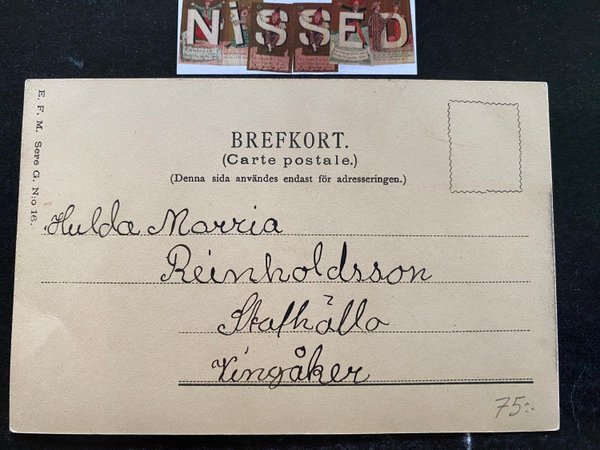 NISSED
BREFKORT.
(Carte postale.)
(Denna sida användes endast för adresseringen.)
E. F. M. Sere G. N:o 16.
Hulda Marria
Reinholdsson
Stafhälla
Vingåker
75:-